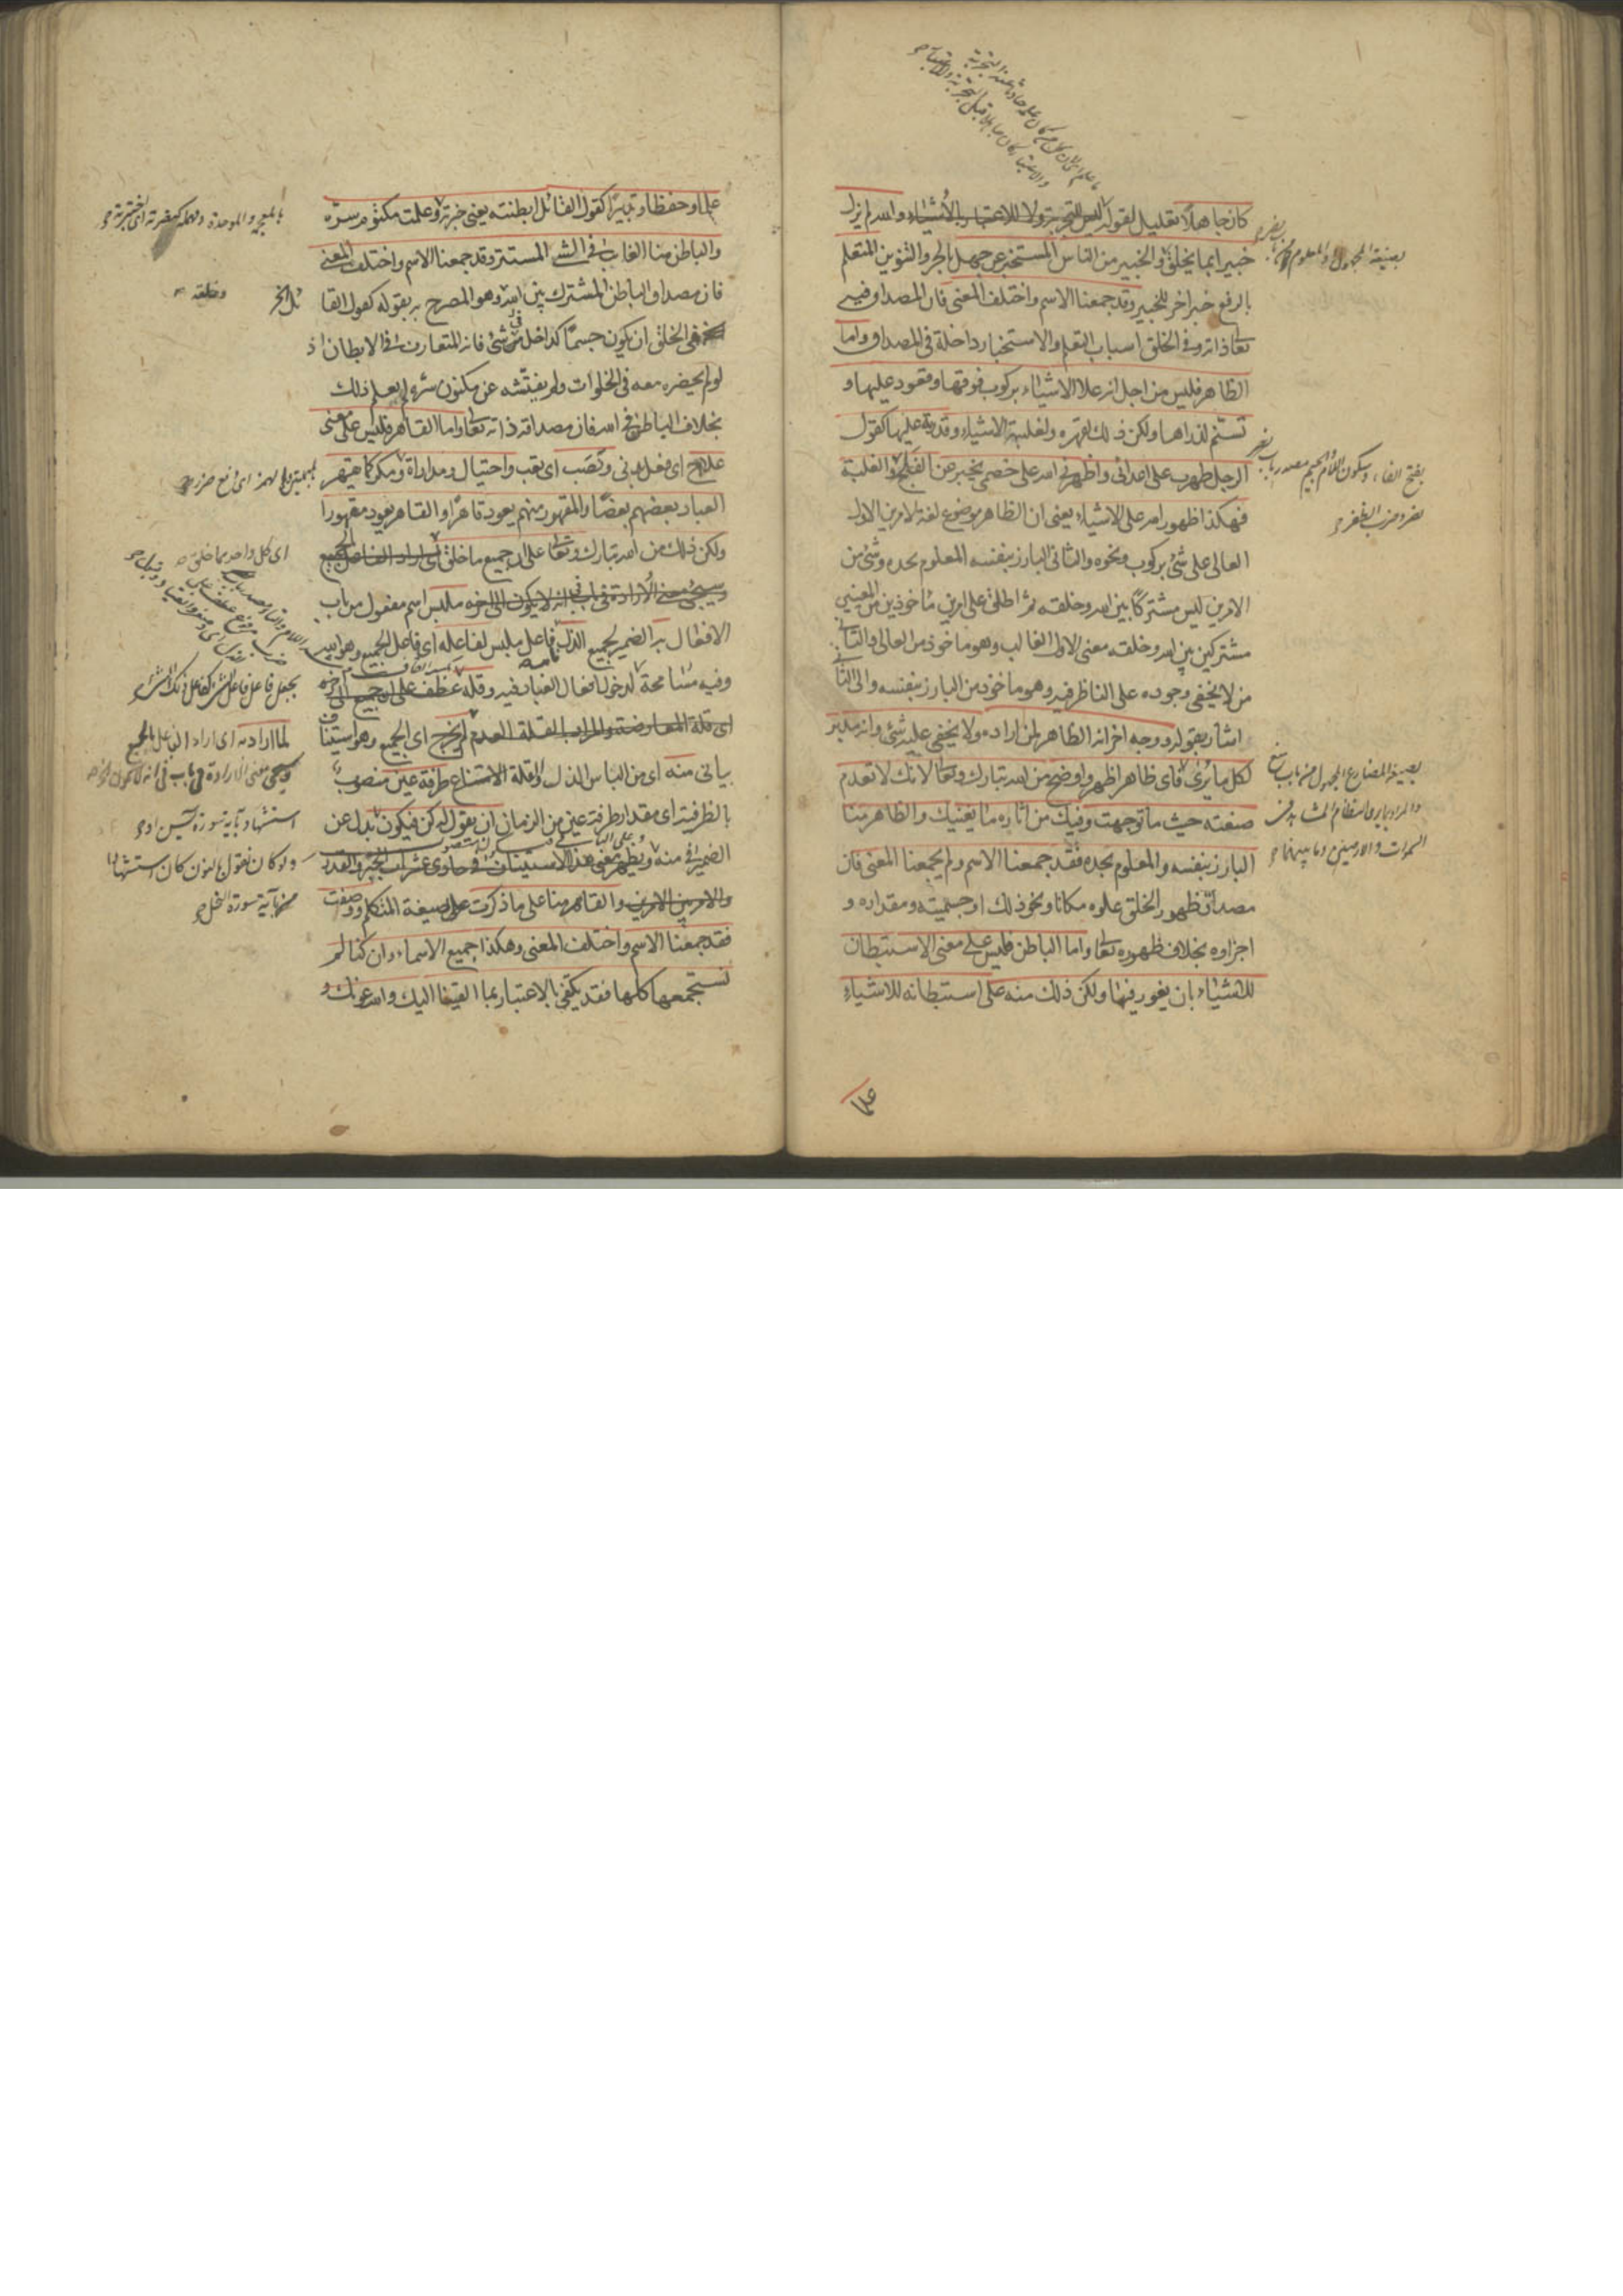 كان جاهلا تعليل لقوله ليس للتجربة ولا للاعتبار بالأشياء والله لم يزل
خبيرا بما يخلق والخبير من الناس المستخبر عن جهل بالجر والتنوين المتعلم
بالرفع خبر اخر للخبير وقد جمعنا الاسم واختلف المعنى فان المصداق فيه
تعالى ذاته وفي الخلق اسباب التعلم والاستخبار داخلة في المصداق واما
الظاهر فليس من اجل انه علا الاشياء بركوب فوقها وقعود عليها و
تسنم لذراها ولكن ذلك لقهره ولغلبته الاشياء وقدرته عليها كقول
الرجل ظهرت على اعدائي واظهرني الله على خصمي يخبر عن الفلج والغلبة
فهكذا ظهور الله على الاشياء يعني ان الظاهر موضوع لغة لامرين الاول
العالي على شئ بركوب ونحوه والثاني البارز بنفسه المعلوم بحده وشئ من
الامرين ليس مشتركا بين الله وخلقه ثم اطلق على امرين مأخوذين من المعنيين
مشتركين بين الله وخلقه معنى الاول الغالب وهو ماخوذ من العالي والثاني
من لا يخفى وجوده على الناظر فيه وهو ماخوذ من البارز بنفسه والى الثاني
اشار بقوله ووجه اخر انه الظاهر لمن اراده ولا يخفى عليه شئ وانه مدبر
لكل ما يرى فاي ظاهر اظهر واوضح من الله تبارك وتعالى لانك لا تعدم
صنعته حيث ما توجهت وفيك من اثاره ما يغنيك والظاهر منا
البارز بنفسه والمعلوم بحده فقد جمعنا الاسم ولم يجمعنا المعنى فان
مصداق ظهور الخلق علوه مكانا ونحو ذلك او جسميته ومقداره و
اجزاوه بخلاف ظهوره تعالى واما الباطن فليس على معنى الاستبطان
للاشياء بان يغور فيها ولكن ذلك منه على استبطانه للاشياء
علما
بفتح الفاء وسكون اللام والجيم مصدر باب نصر
بصيغة المضارع المجهول من باب
السموات والارضين وما بينهما
علما وحفظا وتدبيرا كقول القائل ابطنته يعني خبرته وعلمت مكتوم سره
والباطن منا الغائب في الشئ المستتر وقد جمعنا الاسم واختلف المعنى
فان مصداق الباطن المشترك بين الله وهو المصرح به بقوله كقول القا
ئل الخ
وخلقه
في الخلق ان يكون جسما كداخل في شئ فانه المتعارف في الابطان اذ
لو لم يحضره معه في الخلوات ولم يفتشه عن مكنون سره لم يعلم ذلك
بخلاف الباطن في الله فان مصداقه ذاته تعالى واما القاهر فليس على معنى
علاج اي فعل بدني ونصب اي تعب واحتيال ومداراة ومكر كما يقهر
العباد بعضهم بعضا والمقهور منهم يعود قاهرا والقاهر يعود مقهورا
ولكن ذلك من الله تبارك وتعالى على ان جميع ما خلق اي اراد الفاعل الجميع
وسيجئ معنى الارادة في باب في انه لا يكون الى اخره ملبس اسم مفعول من باب
الافعال به الضمير لجميع الذل فاعل ملبس لفاعله اي فاعل الجميع وهو الله
وفيه مسامحة لدخول افعال العباد فيه وقلة عطف على
اي قلة المعارضة والمراد بالقلة العدم لم يخرج اي الجميع وهو استيناف
بياني منه اي من الباس الذل وقلة الامتناع طرفة عين منصوب
بالظرفية اي مقدار طرفة عين من الزمان ان يقول له كن فيكون بدل عن
الضمير في منه ويظهر معنى هذا الاستيناف في حادى عشر باب الجبر والقدر
والامر بين الامرين والقاهر منا على ما ذكرت على صيغة المتكلم ووصفت
فقد جمعنا الاسم واختلف المعنى وهكذا جميع الاسماء وان كنا لم
نستجمعها كلها فقد يكتفي بالاعتبار بما القينا اليك والله عونك و
اي كل واحد مما خلق
لما اراد به اي اراد الفاعل بالجميع
وسيجئ معنى الارادة في باب في انه لا يكون
استشهاد بآية سورة يس
ولو كان نقول بالنون كان استشهادا
بآية سورة النحل